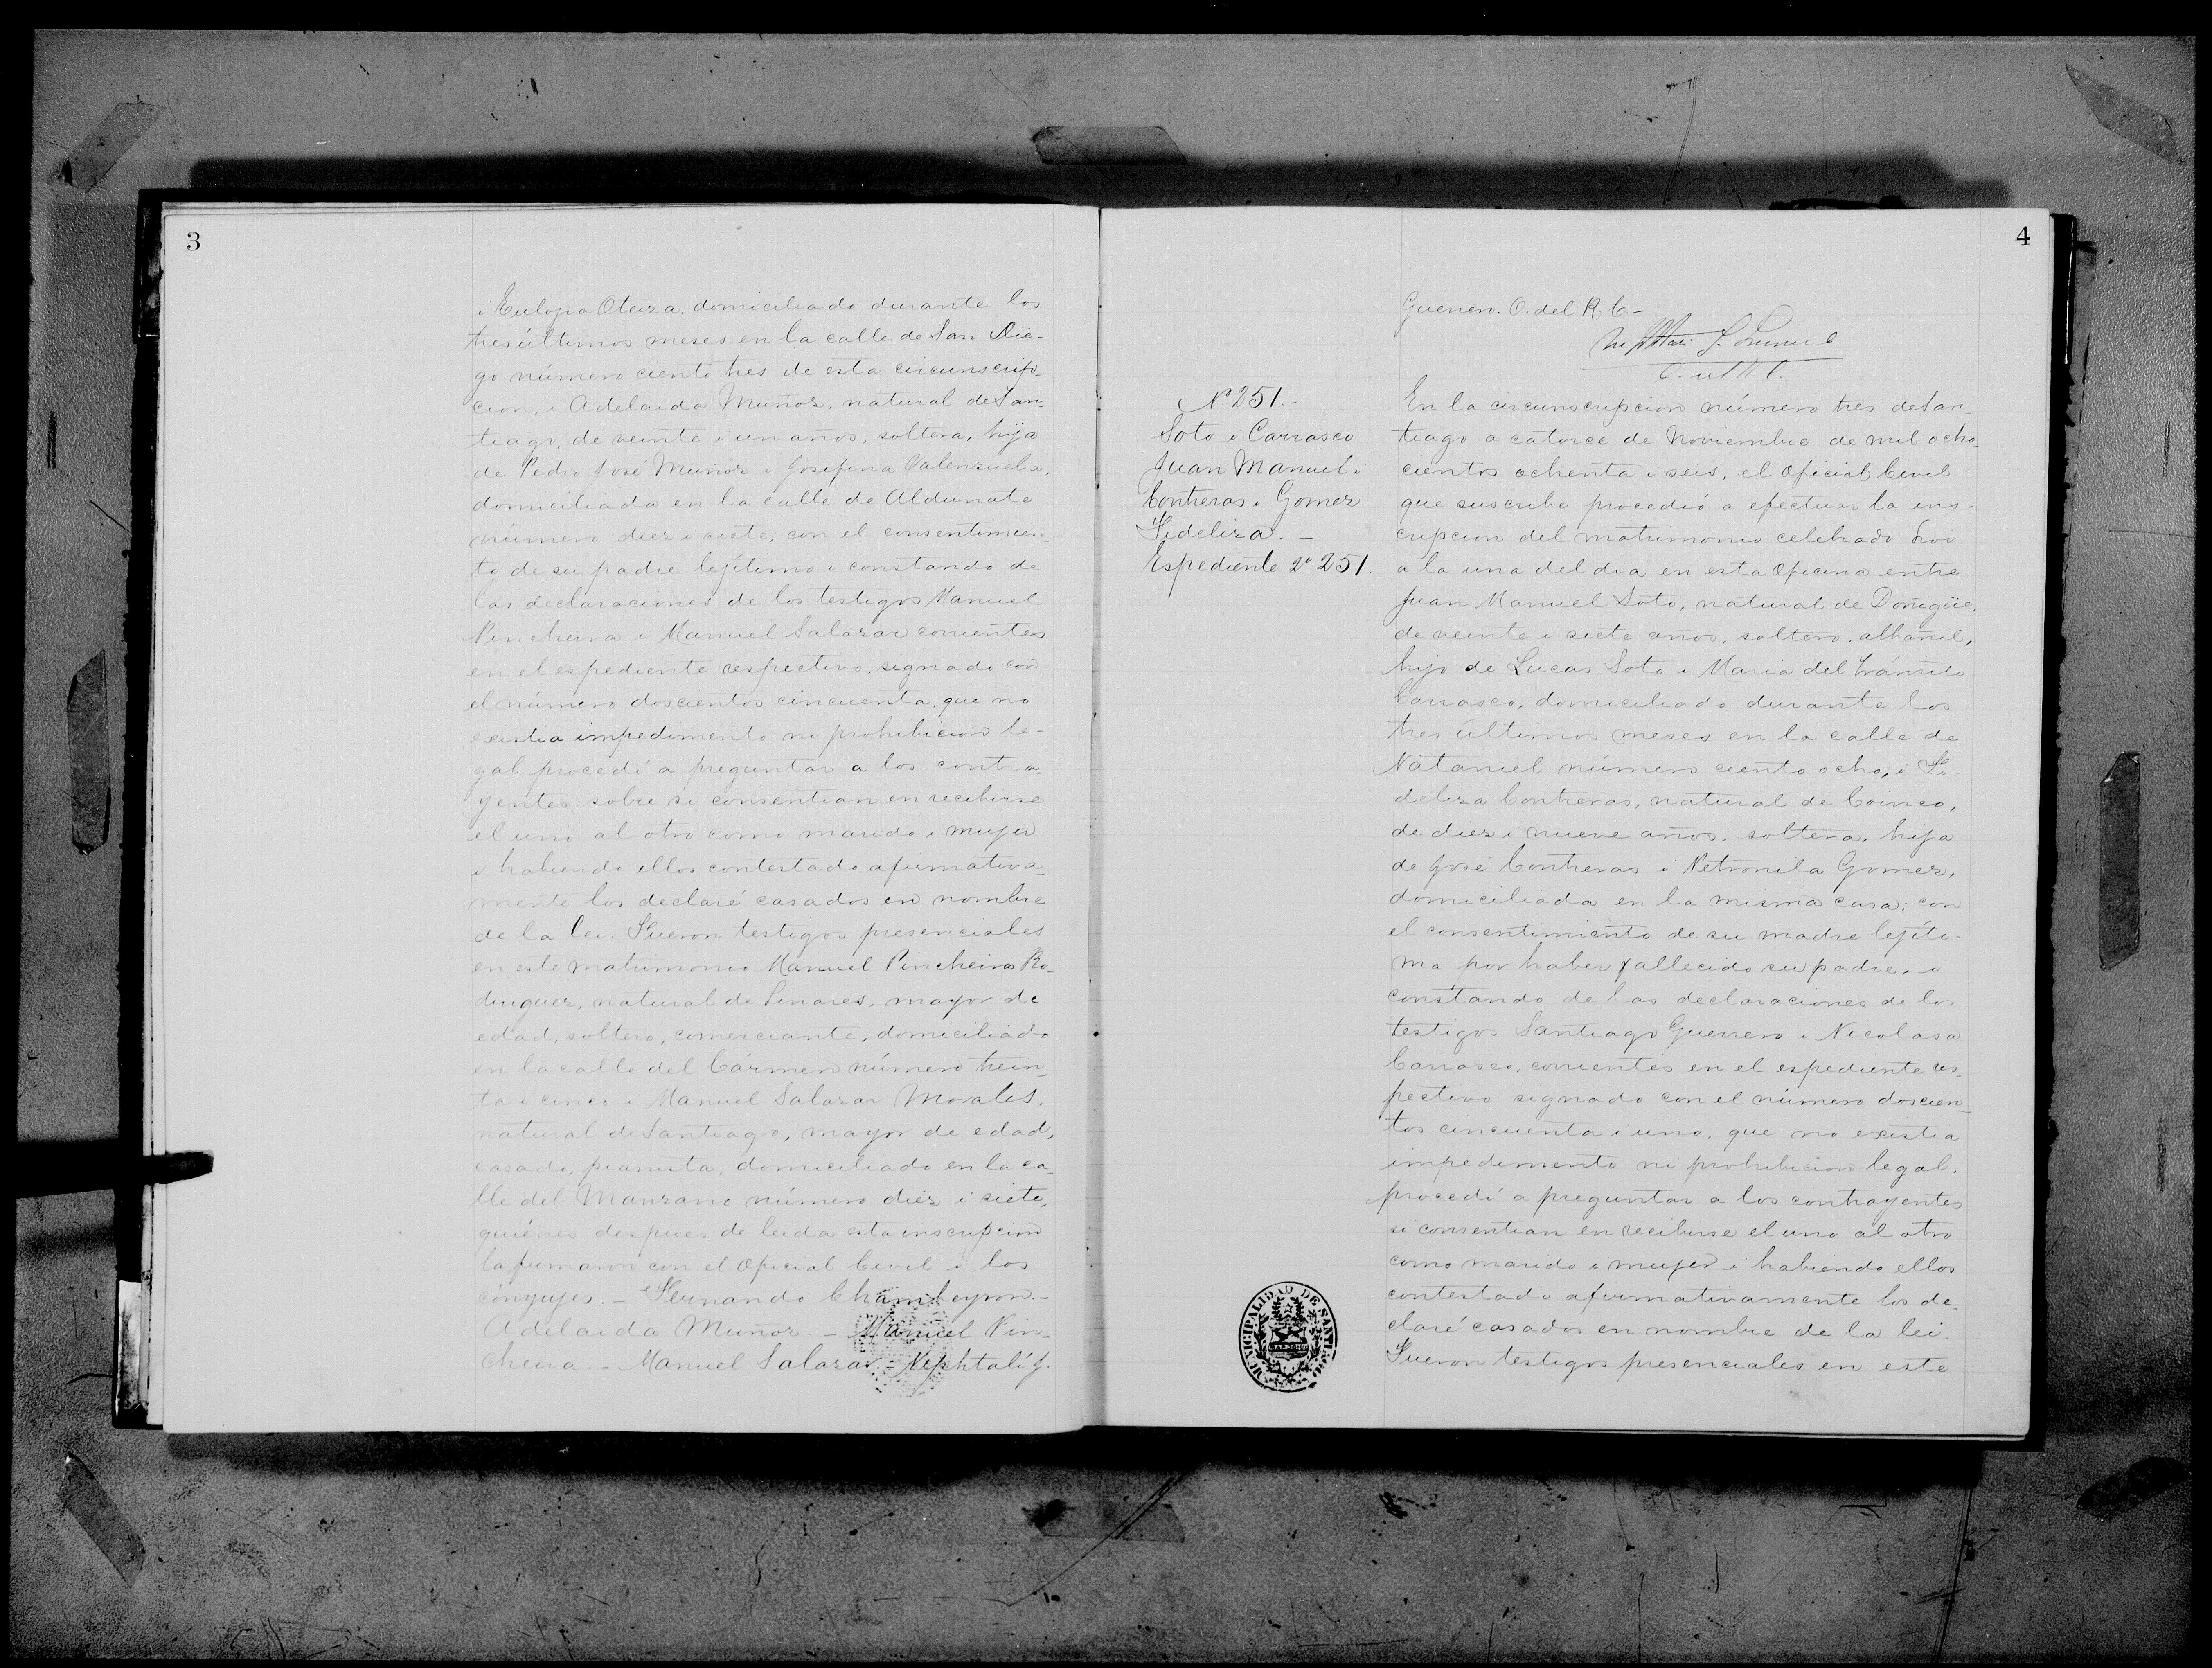 3
i Eulojia Oteiza, domiciliado durante los
tres últimos meses en la calle de San Die-
go número ciento tres de esta circunscrip-
cion, i Adelaida Muñoz, natural de San-
tiago, de veinte i un años, soltera, hija
de Pedro José Muñoz i Josefina Valenzuela,
domiciliada en la calle de Aldunate
número diez i siete, con el consentimien-
to de su padre lejítimo i constando de
las declaraciones de los testigos Manuel
Pincheira i Manuel Salazar corrientes
en el espediente respectivo, signado con
el número doscientos cincuenta, que no
existia impedimento ni prohibicion le-
gal procedí a preguntar a los contra-
yentes sobre si consentian en recibirse
el uno al otro como marido i mujer
i habiendo ellos contestado afirmativa-
mente los declaré casados en nombre
de la lei. Fueron testigos presenciales
en este matrimonio Manuel Pincheira Ro-
driguez, natural de Linares, mayor de
edad, soltero, comerciante, domiciliado
en la calle del Cármen número trein-
ta i cinco i Manuel Salazar Morales,
natural de Santiago, mayor de edad,
casado, pianista, domiciliado en la ca-
lle del Manzano número diez i siete,
quiénes despues de leida esta inscripcion
la firmaron con el Oficial Civil i los
cónyujes. - Fernando Chambeyron. -
Adelaida Muñoz. - Manuel Pin-
cheira - Manuel Salazar. - Nephtalí J.
4
Guerrero. O. del R. C. -
Nº 251. -
Soto i Carrasco
Juan Manuel i
Contreras i Gomez
Fideliza. -
Espediente Nº 251.
En la circunscripcion número tres de San-
tiago a catorce de Noviembre de mil ocho-
cientos ochenta i seis, el Oficial Civil
que suscribe procedió a efectuar la ins-
cripcion del matrimonio celebrado hoi
a la una del dia en esta Oficina entre
Juan Manuel Soto, natural de Doñigüe,
de veinte i siete años, soltero, albañil,
hijo de Lucas Soto i Maria del Tránsito
Carrasco, domiciliado durante los
tres últimos meses en la calle de
Nataniel número ciento ocho, i Fi-
deliza Contreras, natural de Coinco,
de diez i nueve años, soltera, hija
de José Contreras i Petronila Gomez,
domiciliada en la misma casa; con
el consentimiento de su madre lejíti-
ma por haber fallecido su padre, i
constando de las declaraciones de los
testigos Santiago Guerrero i Nicolasa
Carrasco, corrientes en el espediente res-
pectivo signado con el número doscien-
tos cincuenta i uno, que no existia
impedimento ni prohibicion legal,
procedí a preguntar a los contrayentes
si consentian en recibirse el uno al otro
como marido i mujer i habiendo ellos
contestado afirmativamente los de-
claré casados en nombre de la lei.
Fueron testigos presenciales en este
MUNICIPALIDAD DE SANTIAGO